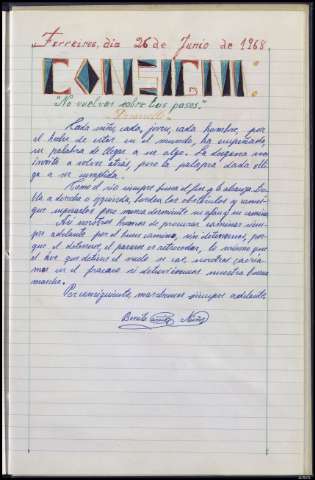 Ferreiros, día 26 de Junio de 1968.
CONSIGNA:
"No vuelvas sobre tus pasos."
Desarrollo
Cada niño, cada joven, cada hombre, por
el hecho de estar en el mundo, ha empeñado
su palabra de llegar a ser algo. La pereza nos
invita a volver atrás, pero la palabra dada obli-
ga a ser cumplida.
Como el río siempre busca el fin y lo alcanza. Do-
bla a derecha e izquierda, bordea los obstáculos y consi-
gue superarlos pero nunca desmiente su afán y su camino.
Así nosotros hemos de procurar caminar siem-
pre adelante por el buen camino, sin detenernos, por-
que el detenerse, el pararse es retroceder, lo mismo que
el ave que detiene el vuelo se cae, nosotros caería-
mos en el fracaso si detuviésemos nuestra buena
marcha.
Por consiguiente, marchemos siempre adelante.
Benito Núñez